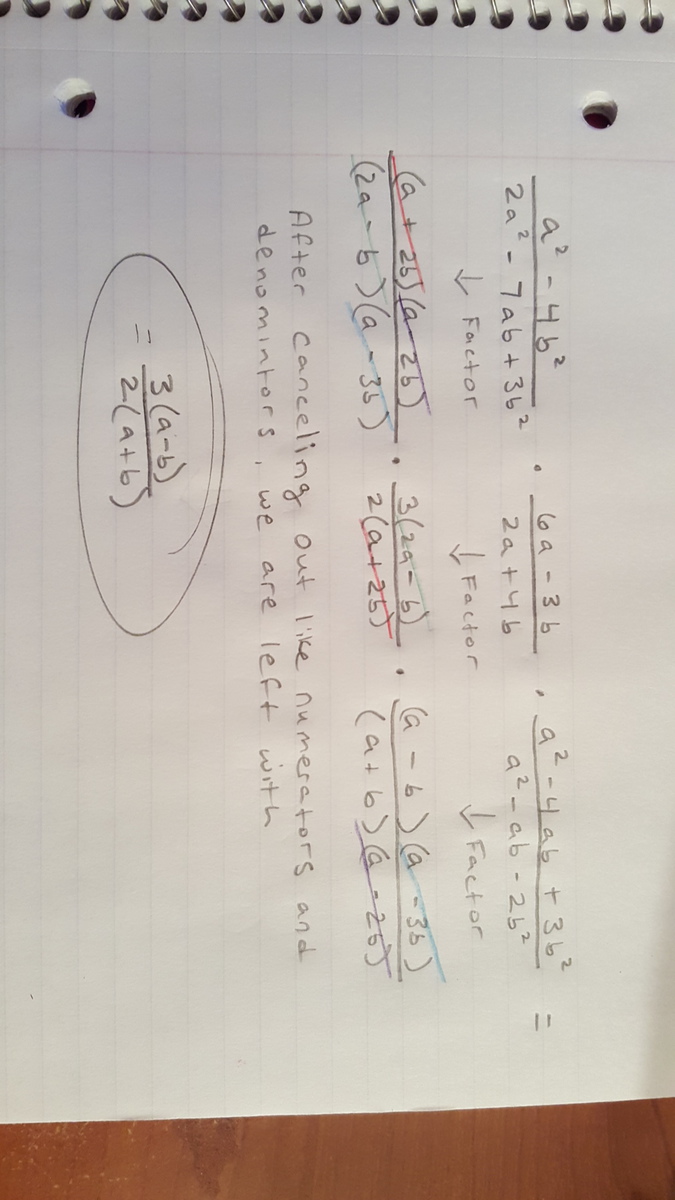 a² - 4b² / 2a² - 7ab + 3b² · 6a - 3b / 2a + 4b · a² - 4ab + 3b² / a² - ab - 2b² =
↓ Factor ↓ Factor ↓ Factor
(a + 2b)(a - 2b) / (2a - b)(a - 3b) · 3(2a - b) / 2(a + 2b) · (a - b)(a - 3b) / (a + b)(a - 2b)
After canceling out like numerators and
denomintors, we are left with
= 3(a-b) / 2(a+b)